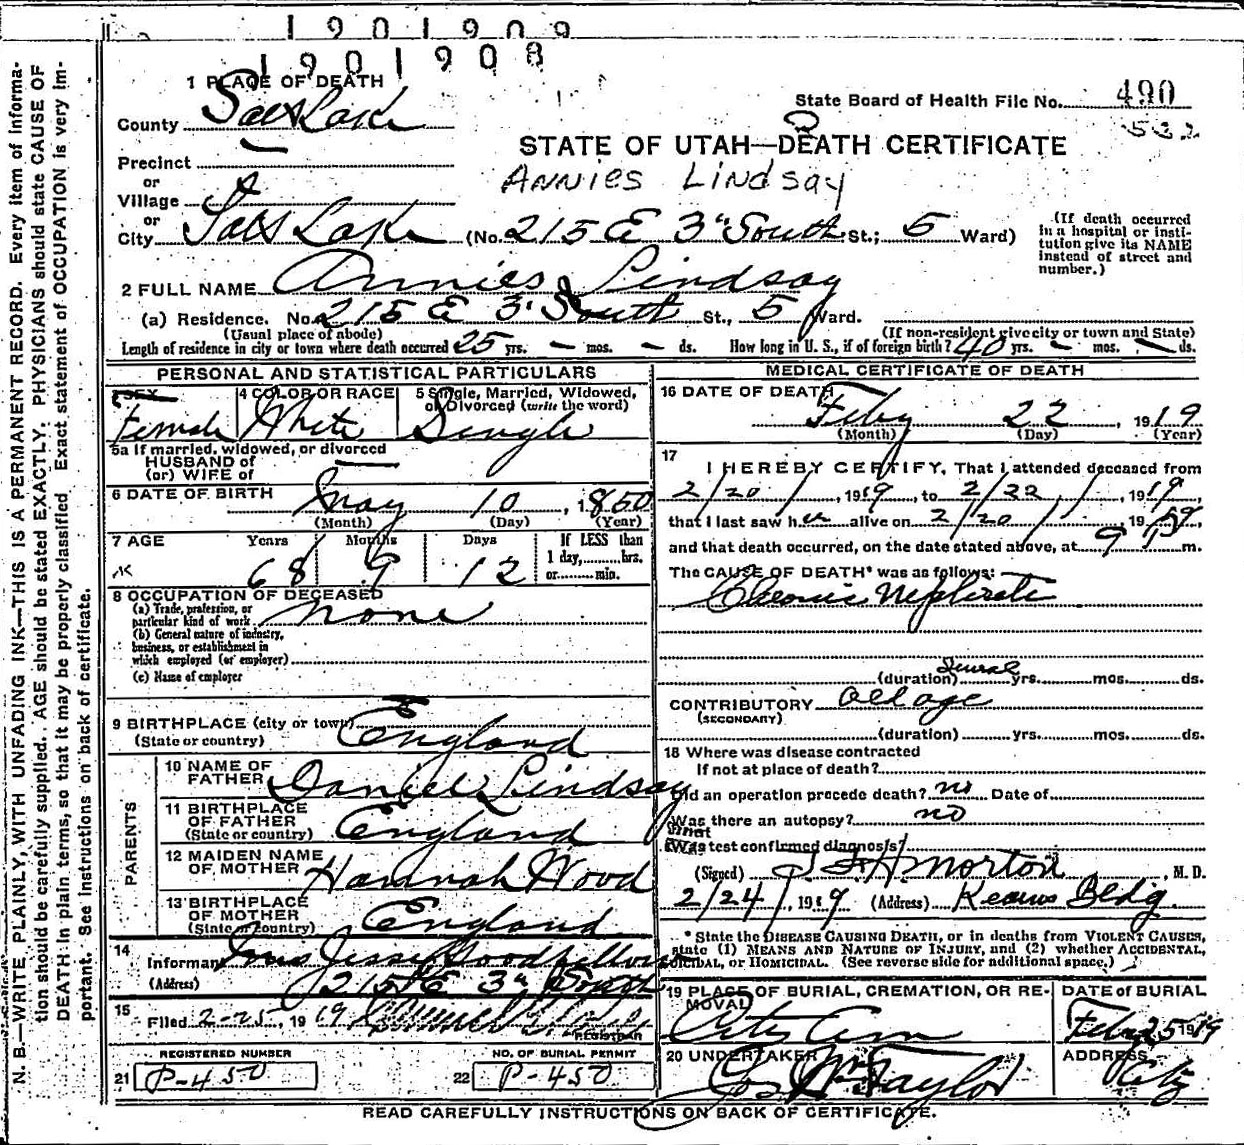 1901909
1901908
1 PLACE OF DEATH
County Salt Lake
State Board of Health File No. 490
532
STATE OF UTAH—DEATH CERTIFICATE
Precinct
or
Village
ANNIES LINDSAY
or
City Salt Lake (No. 215 E 3" South St.; 5 Ward)
(If death occurred in a hospital or institution give its NAME instead of street and number.)
2 FULL NAME Annies Lindsay
(a) Residence. No. 215 E 3" South St., 5 Ward.
(Usual place of abode) (If non-resident give city or town and State)
Length of residence in city or town where death occurred 25 yrs. — mos. — ds. How long in U. S., if of foreign birth? 40 yrs. — mos. — ds.
PERSONAL AND STATISTICAL PARTICULARS
3 SEX Female
4 COLOR OR RACE White
5 Single, Married, Widowed, or Divorced (write the word) Single
5a If married, widowed, or divorced
HUSBAND of
(or) WIFE of —
6 DATE OF BIRTH May 10, 1850
(Month) (Day) (Year)
7 AGE Years Months Days If LESS than
1 day,......hrs.
or......min.
68 9 12
8 OCCUPATION OF DECEASED
(a) Trade, profession, or
particular kind of work none
(b) General nature of industry,
business, or establishment in
which employed (or employer)
(c) Name of employer
9 BIRTHPLACE (city or town)
(State or country) England
PARENTS
10 NAME OF
FATHER Daniel Lindsay
11 BIRTHPLACE
OF FATHER
(State or country) England
12 MAIDEN NAME
OF MOTHER Hannah Wood
13 BIRTHPLACE
OF MOTHER
(State or country) England
14
Informant Mrs Jessie Goodfellow
(Address) 215 E 3" South
15
Filed 2-25, 1919
REGISTRAR
REGISTERED NUMBER
21 P-450
NO. OF BURIAL PERMIT
22 P-450
MEDICAL CERTIFICATE OF DEATH
16 DATE OF DEATH
Feby 22, 1919
(Month) (Day) (Year)
17
I HEREBY CERTIFY, That I attended deceased from
2/20/, 1919, to 2/22/, 1919,
that I last saw her alive on 2/20/ 1919,
and that death occurred, on the date stated above, at 9 P m.
The CAUSE OF DEATH* was as follows:
Chronic Nephritis
(duration) Several yrs. mos. ds.
CONTRIBUTORY Old age
(SECONDARY)
(duration) yrs. mos. ds.
18 Where was disease contracted
If not at place of death?
Did an operation precede death? no Date of
Was there an autopsy? no
What test confirmed diagnosis?
(Signed) Morton, M. D.
2/24/, 1919 (Address) Kearns Bldg.
* State the DISEASE CAUSING DEATH, or in deaths from VIOLENT CAUSES,
state (1) MEANS AND NATURE OF INJURY, and (2) whether ACCIDENTAL,
SUICIDAL, or HOMICIDAL. (See reverse side for additional space.)
19 PLACE OF BURIAL, CREMATION, OR REMOVAL
City Cem
DATE of BURIAL
Feby 25 1919
20 UNDERTAKER
Jos Wm Taylor
ADDRESS
City
READ CAREFULLY INSTRUCTIONS ON BACK OF CERTIFICATE.
N. B.—WRITE PLAINLY, WITH UNFADING INK—THIS IS A PERMANENT RECORD. Every item of information should be carefully supplied. AGE should be stated EXACTLY. PHYSICIANS should state CAUSE OF DEATH in plain terms, so that it may be properly classified. Exact statement of OCCUPATION is very important. See Instructions on back of certificate.